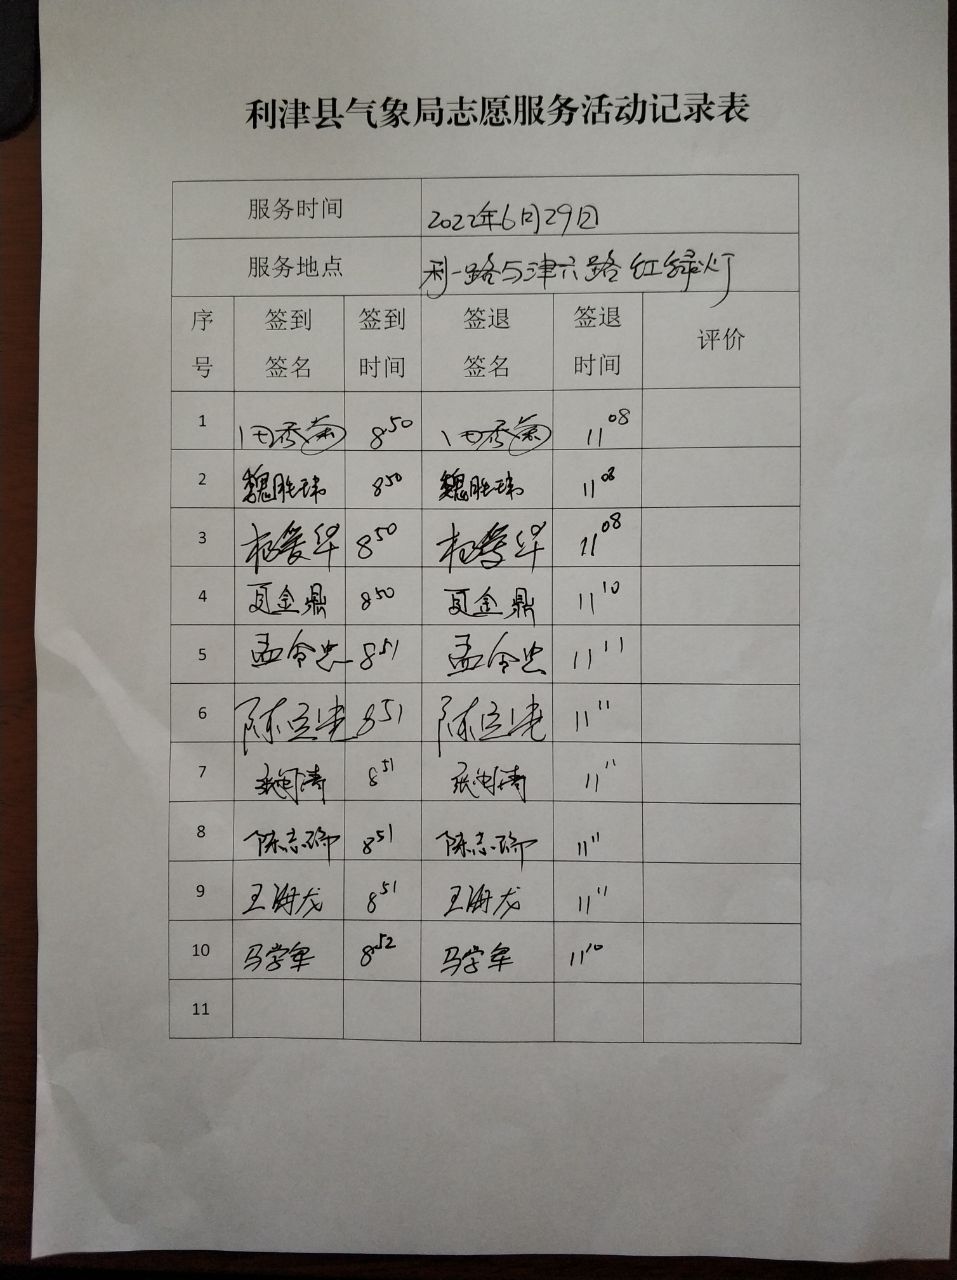 利津县气象局志愿服务活动记录表
服务时间 2022年6月29日
服务地点 利一路与津六路红绿灯
序号 签到签名 签到时间 签退签名 签退时间 评价
1 田秀菊 8 50 田秀菊 11 08
2 魏胜玮 8 50 魏胜玮 11 08
3 杨爱华 8 50 杨爱华 11 08
4 夏金鼎 8 50 夏金鼎 11 10
5 孟令忠 8 51 孟令忠 11 11
6 8 51 11 11
7 8 51 11 11
8 8 51 11 11
9 王海龙 8 51 王海龙 11 11
10 马学军 8 52 马学军 11 10
11